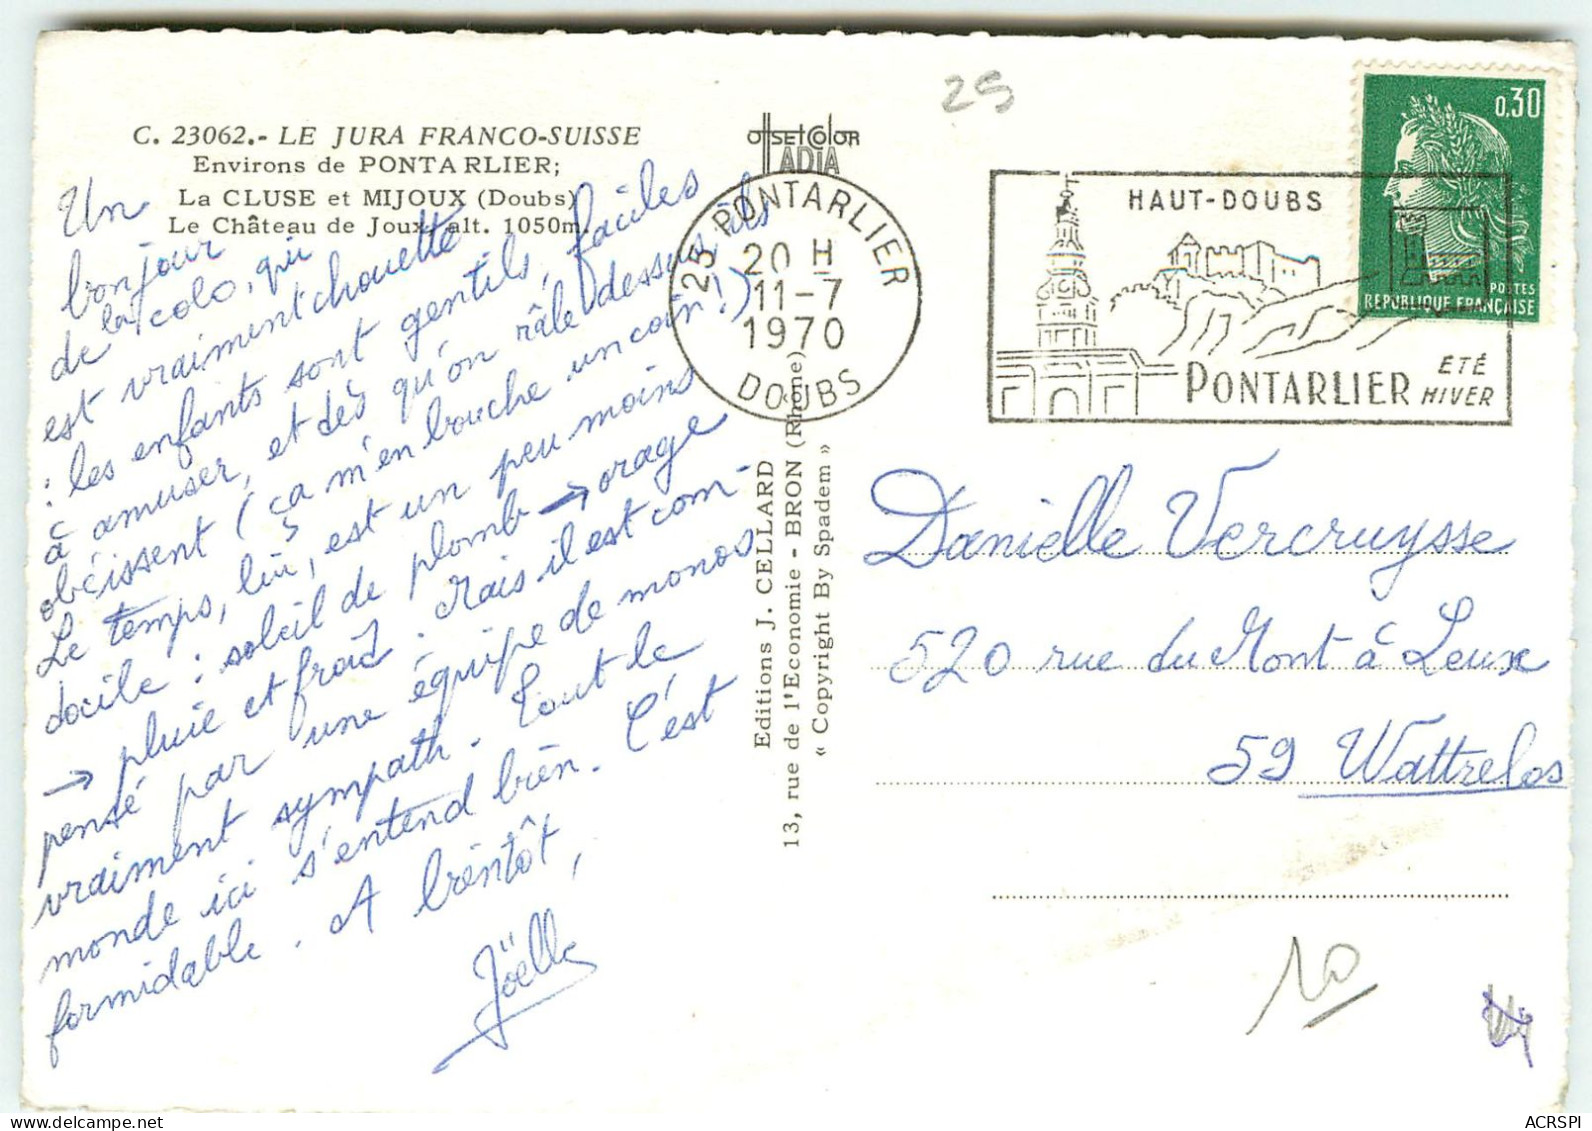 C. 23062.- LE JURA FRANCO-SUISSE
Environs de PONTARLIER;
La CLUSE et MIJOUX (Doubs)
Le Château de Joux, alt. 1050m.
Un
bonjour
de la colo, qui
est vraiment chouette
: les enfants sont gentils, faciles
à amuser, et dès qu'on râle dessus ils
obéissent (ça m'en bouche un coin!)
Le temps, lui, est un peu moins
docile : soleil de plomb → orage
→ pluie et froid. Mais il est com-
pensé par une équipe de monos
vraiment sympath. Tout le
monde ici s'entend bien. C'est
formidable. A bientôt,
Joëlle
OffSEtColoR
IADIA
25 PONTARLIER
20 H
11-7
1970
DOUBS
Editions J. CELLARD
13, rue de l'Economie - BRON (Rhône)
« Copyright By Spadem »
25
HAUT-DOUBS
PONTARLIER
ÉTÉ
HIVER
0,30
POSTES
REPUBLIQUE FRANÇAISE
Danielle Vercruysse
520 rue du Mont à Leux
59 Wattrelos
10
ACRSPI